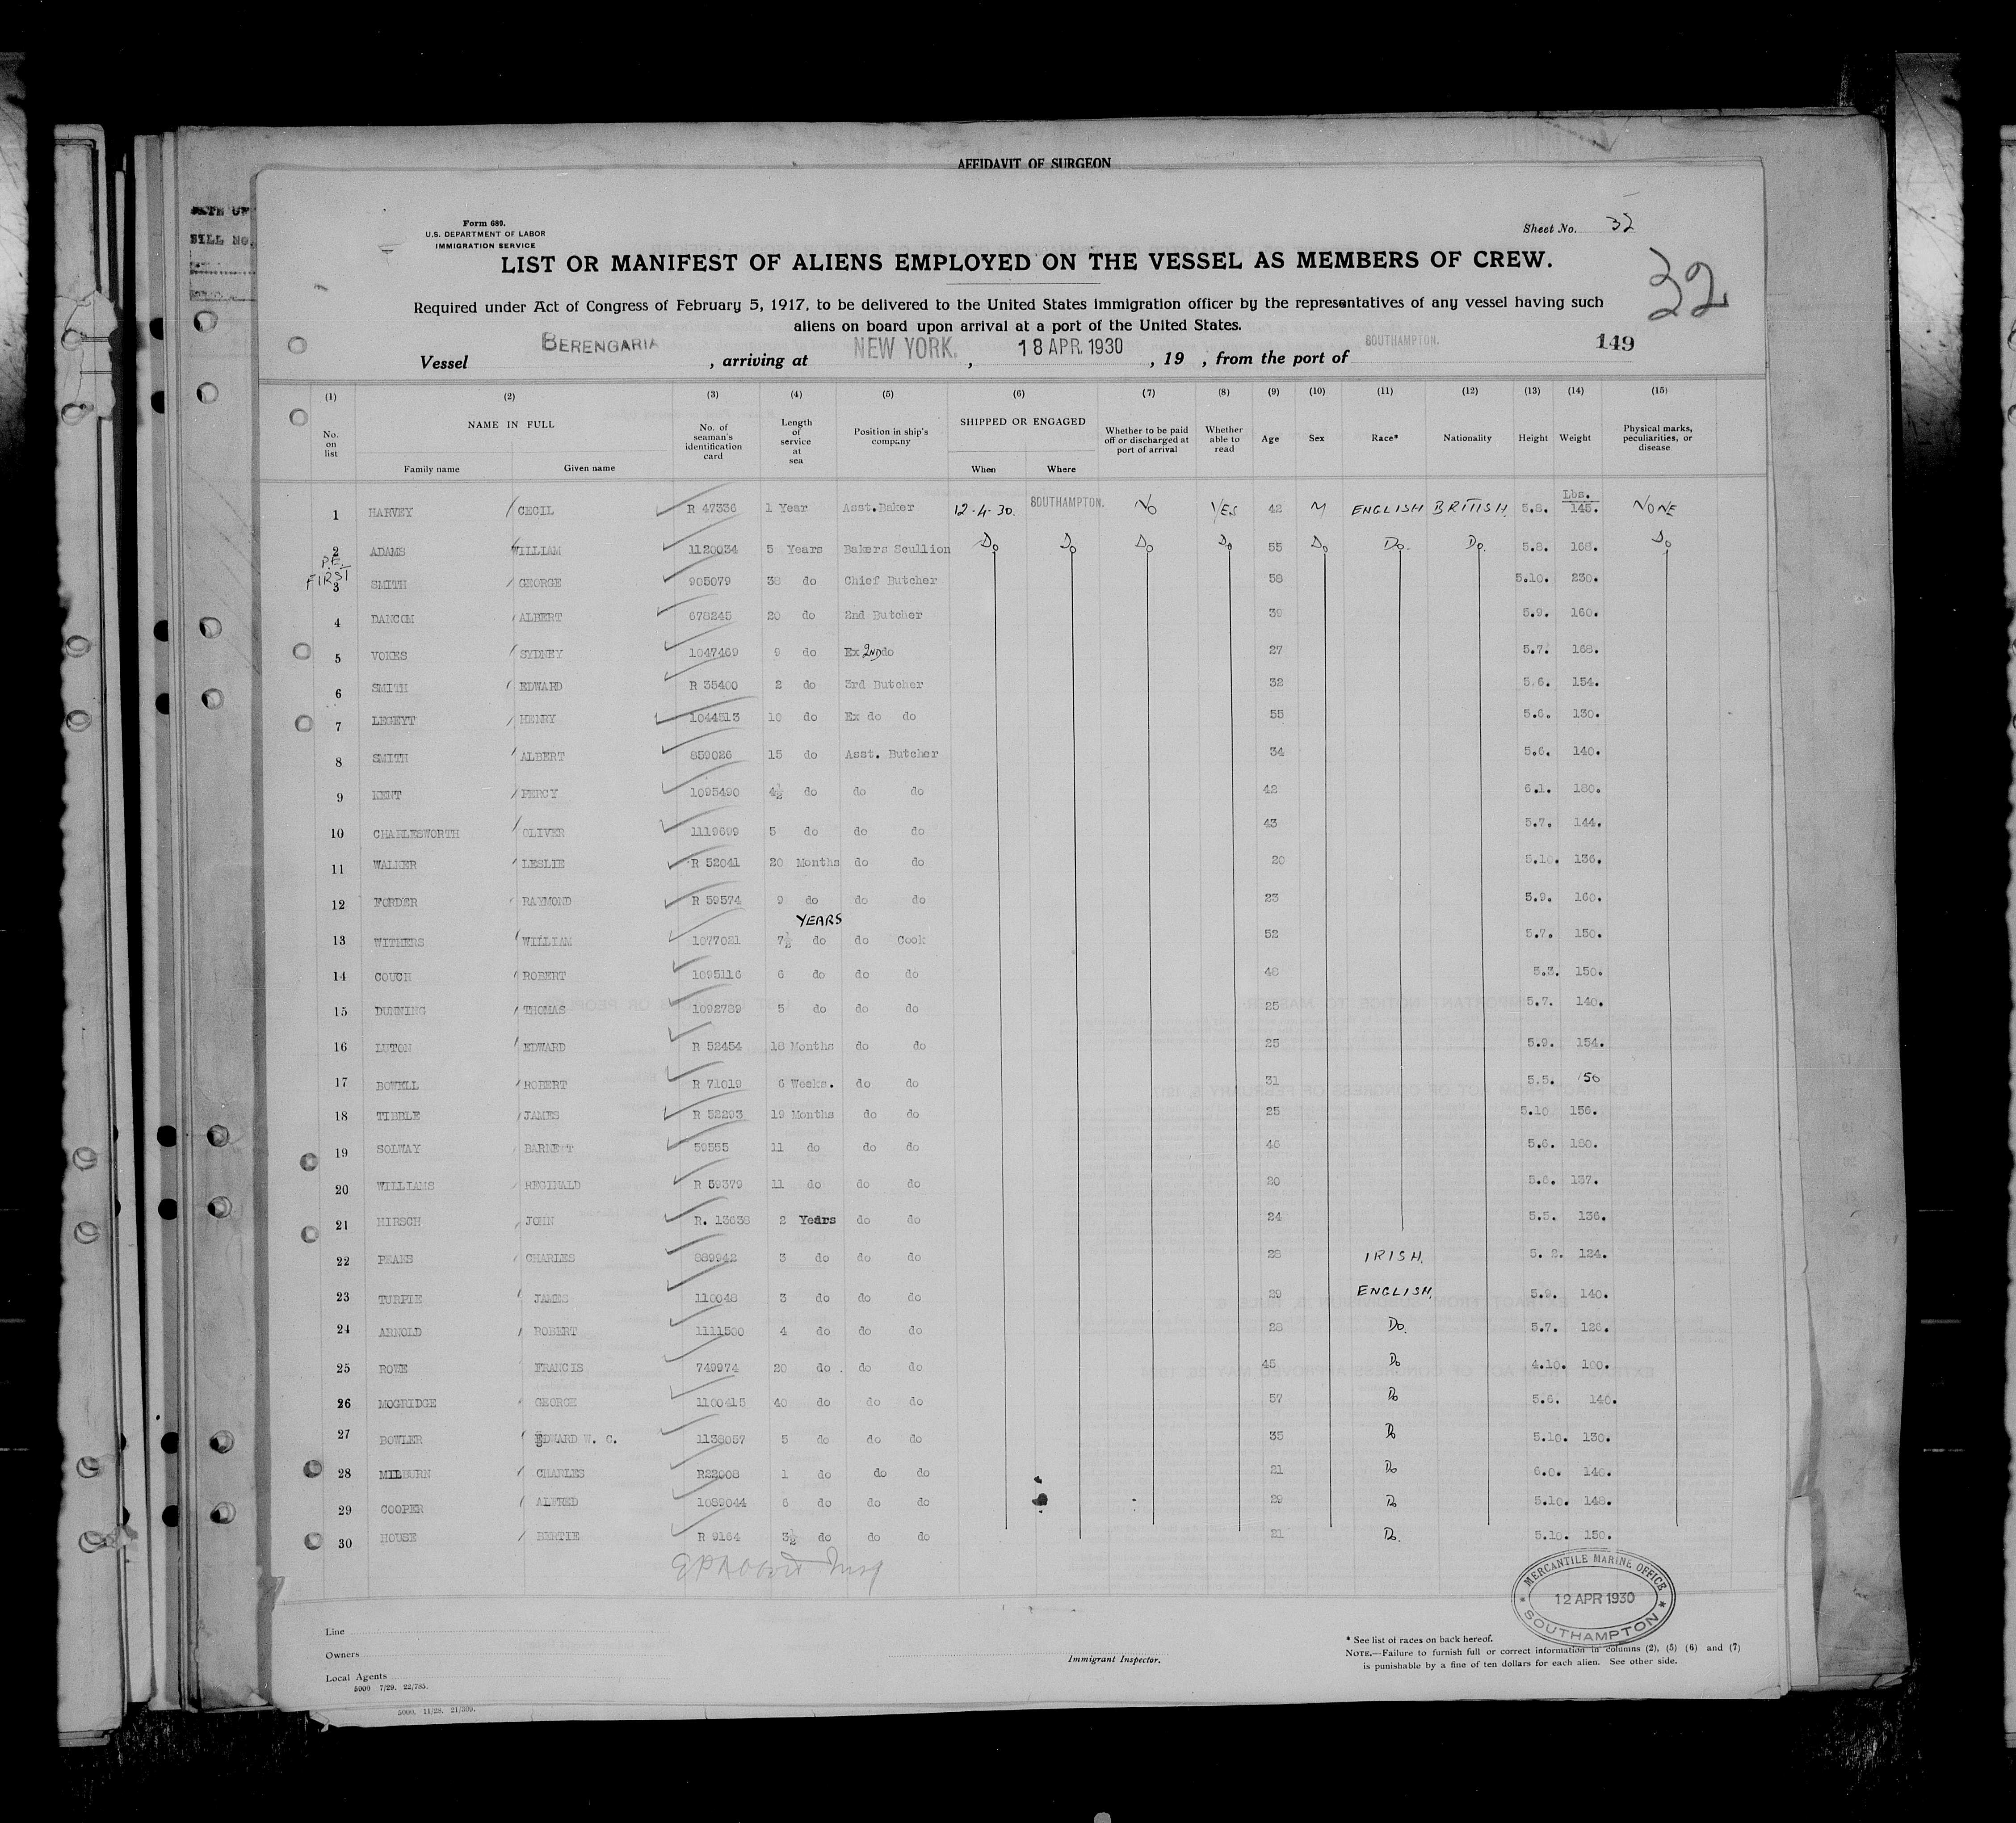 AFFIDAVIT OF SURGEON
Form 689.
U.S. DEPARTMENT OF LABOR
IMMIGRATION SERVICE
Sheet No. 32
32
LIST OR MANIFEST OF ALIENS EMPLOYED ON THE VESSEL AS MEMBERS OF CREW.
Required under Act of Congress of February 5, 1917, to be delivered to the United States immigration officer by the representatives of any vessel having such
aliens on board upon arrival at a port of the United States.
Vessel BERENGARIA, arriving at NEW YORK., 18 APR. 1930, 19 , from the port of SOUTHAMPTON. 149
(1) (2) (3) (4) (5) (6) (7) (8) (9) (10) (11) (12) (13) (14) (15)
No. on list NAME IN FULL Family name Given name No. of seaman's identification card Length of service at sea Position in ship's company SHIPPED OR ENGAGED When Where Whether to be paid off or discharged at port of arrival Whether able to read Age Sex Race* Nationality Height Weight Physical marks, peculiarities, or disease
Lbs.
1 HARVEY CECIL R 47336 1 Year Asst.Baker 12-4-30. SOUTHAMPTON. NO YES 42 M ENGLISH BRITISH. 5.8. 145. NONE
2 ADAMS WILLIAM 1120034 5 Years Bakers Scullion Do Do Do Do 55 Do Do. Do. 5.8. 168. Do
P.E. FIRST
3 SMITH GEORGE 905079 38 do Chief Butcher 56 5.10. 230.
4 DANCOM ALBERT 678245 20 do 2nd Butcher 39 5.9. 160.
5 VOKES SYDNEY 1047469 9 do Ex 2ND do 27 5.7. 168.
6 SMITH EDWARD R 35400 2 do 3rd Butcher 32 5.6. 154.
7 LEGEYT HENRY 1044513 10 do Ex do do 55 5.6. 130.
8 SMITH ALBERT 859026 15 do Asst. Butcher 34 5.6. 140.
9 KENT PERCY 1095490 4½ do do do 42 6.1. 180.
10 CHARLESWORTH OLIVER 1119699 5 do do do 43 5.7. 144.
11 WALKER LESLIE R 52041 20 Months do do 20 5.10. 136.
12 FORDER RAYMOND R 59574 9 do do do 23 5.9. 160.
YEARS
13 WITHERS WILLIAM 1077021 7½ do do Cook 52 5.7. 150.
14 COUCH ROBERT 1095116 6 do do do 48 5.3. 150.
15 DUNNING THOMAS 1092789 5 do do do 25 5.7. 140.
16 LUTON EDWARD R 52454 18 Months do do 25 5.9. 154.
17 BOWELL ROBERT R 71019 6 Weeks. do do 31 5.5. 150
18 TIBBLE JAMES R 52293 19 Months do do 25 5.10 156.
19 SOLWAY BARNETT 59555 11 do do do 46 5.6. 180.
20 WILLIAMS REGINALD R 59379 11 do do do 20 5.6. 137.
21 HIRSCH JOHN R. 13638 2 Years do do 24 5.5. 136.
22 PEANS CHARLES 889942 3 do do do 28 IRISH. 5. 2. 124.
23 TURPIE JAMES 110048 3 do do do 29 ENGLISH. 5.9. 140.
24 ARNOLD ROBERT 1111500 4 do do do 28 Do. 5.7. 126.
25 ROWE FRANCIS 749974 20 do . do do 45 Do 4.10. 100.
26 MOGRIDGE GEORGE 1100415 40 do do do 57 Do 5.6. 140.
27 BOWLER EDWARD W. C. 1138057 5 do do do 35 Do 5.10. 130.
28 MILBURN CHARLES R22008 1 do do do 21 Do 6.0. 140.
29 COOPER ALFRED 1089044 6 do do do 29 Do 5.10. 148.
30 HOUSE BERTIE R 9164 3½ do do do 21 Do. 5.10. 150.
MERCANTILE MARINE OFFICE
12 APR 1930
SOUTHAMPTON
Line
Owners
Local Agents
5000 7/29. 22/785.
Immigrant Inspector.
* See list of races on back hereof.
NOTE.—Failure to furnish full or correct information in columns (2), (5) (6) and (7)
is punishable by a fine of ten dollars for each alien. See other side.
5000. 11/28. 21/309.